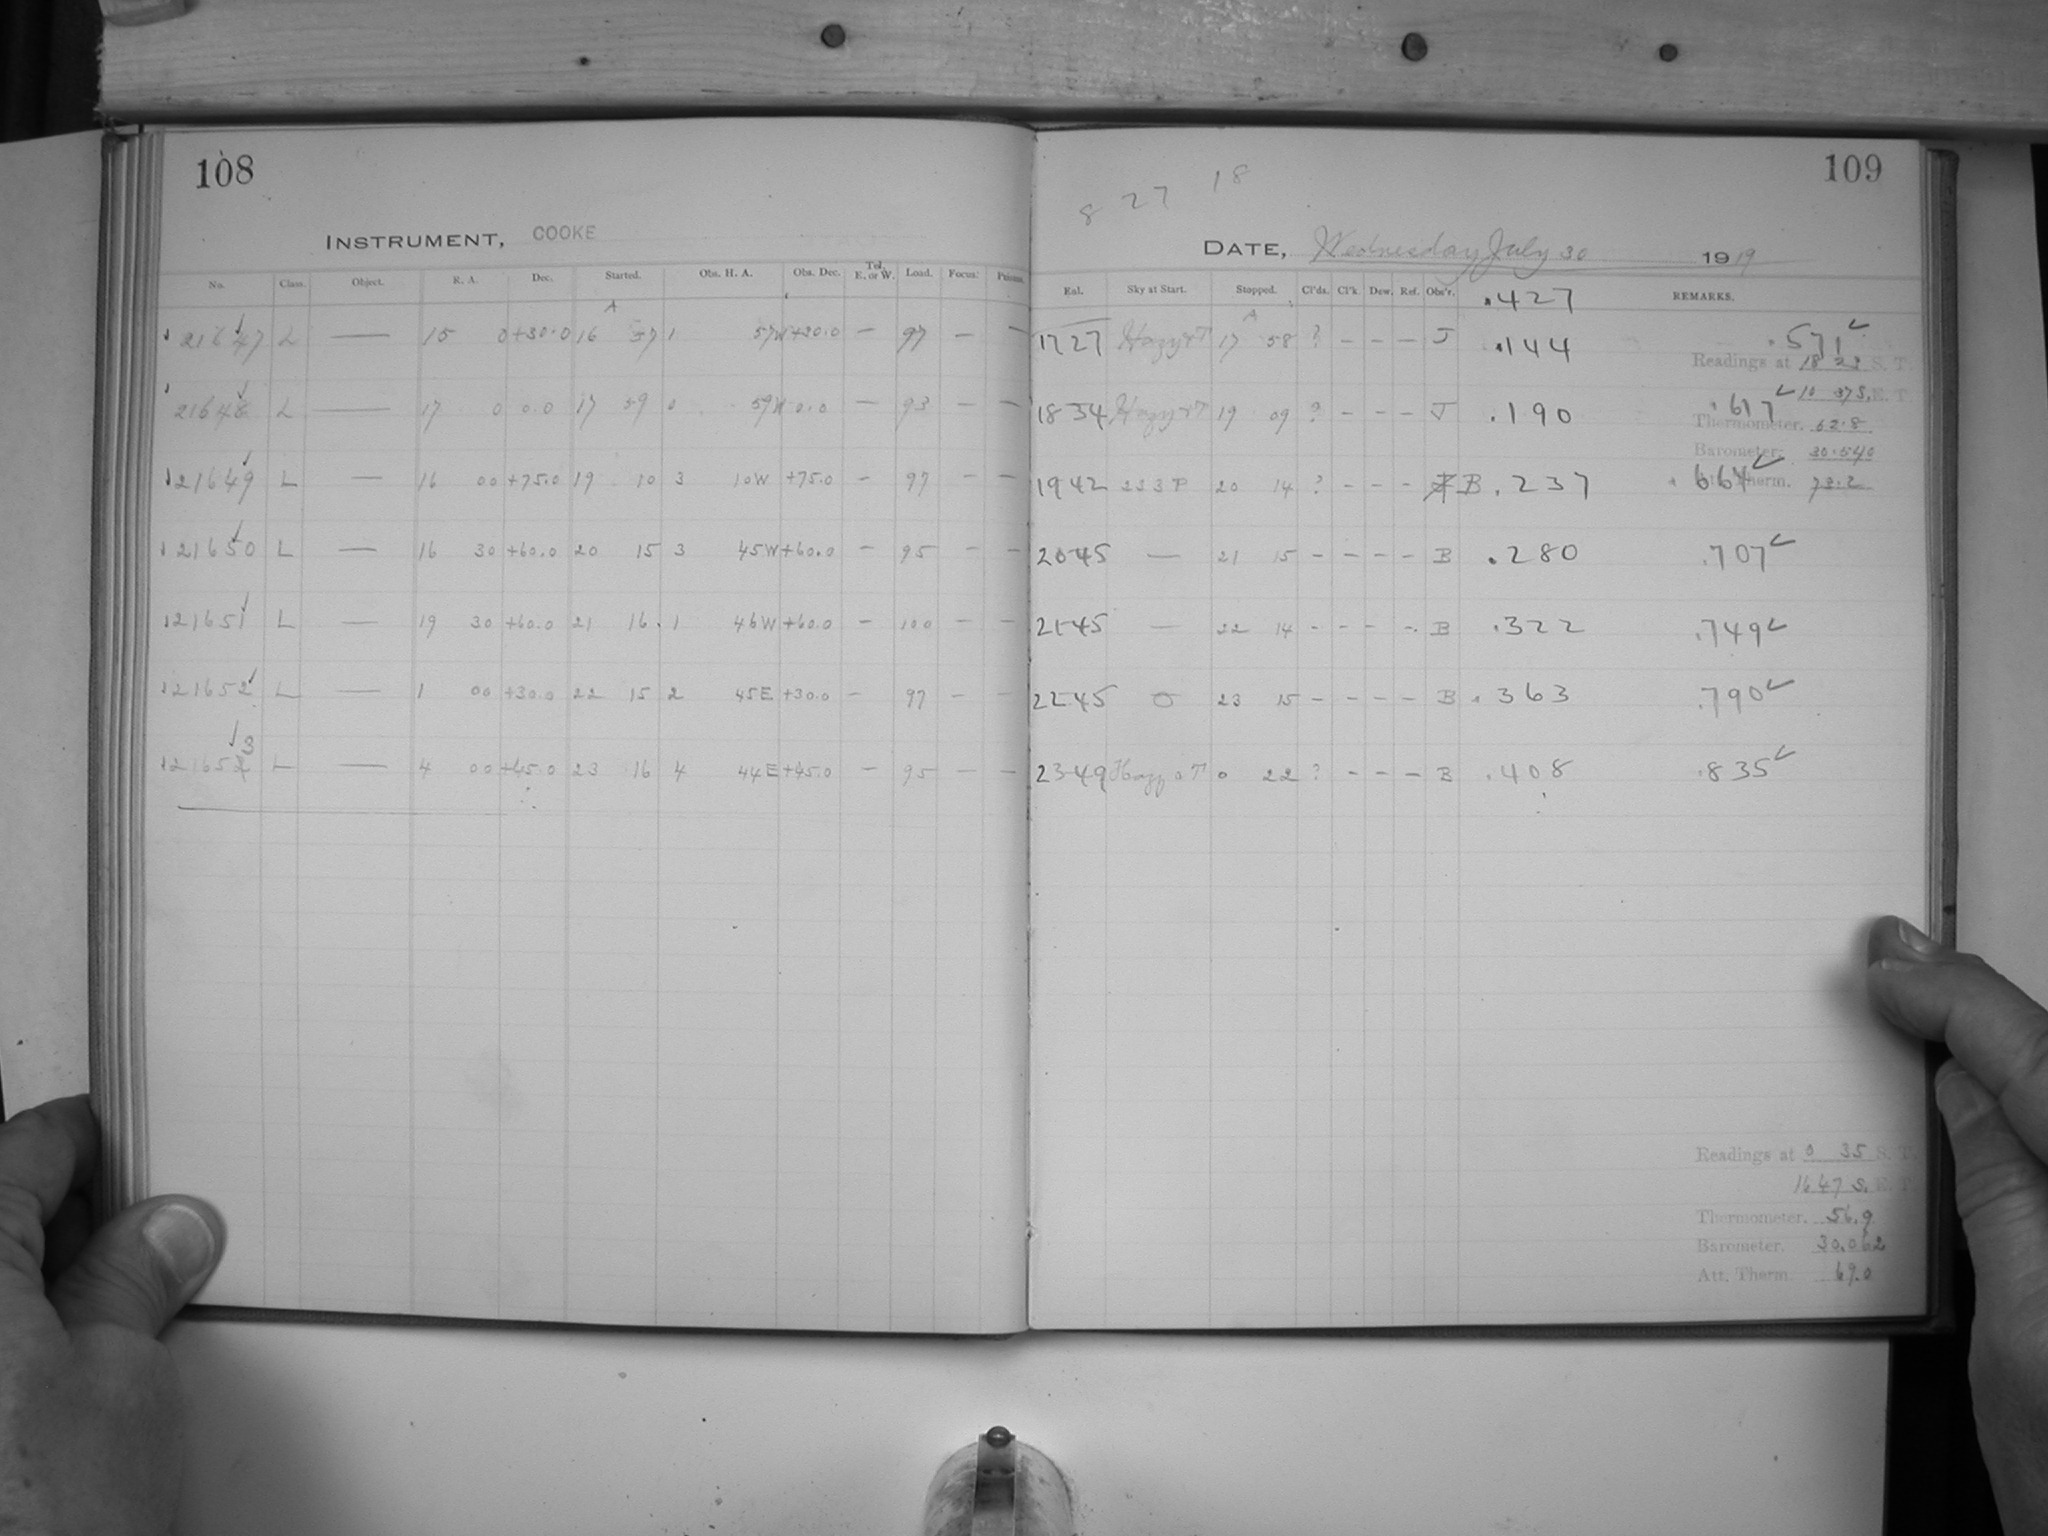 108
INSTRUMENT, COOKE
No. Class. Object. R. A. Dec. Started. Obs. H. A. Obs. Dec. Tel. E. or W. Load. Focus.
A
21647 L — 15 0 +30.0 16 57 1 57W +30.0 — 97 — —
21648 L — 17 0 0.0 17 59 0 59W 0.0 — 93 — —
21649 L — 16 00 +75.0 19 10 3 10W +75.0 — 97 — —
21650 L — 16 30 +60.0 20 15 3 45W +60.0 — 95 — —
21651 L — 19 30 +60.0 21 16 1 46W +60.0 — 100 — —
21652 L — 1 00 +30.0 22 15 2 45E +30.0 — 97 — —
3
21652 L — 4 00 +45.0 23 16 4 44E +45.0 — 95 — —
109
8 27 18
DATE, Wednesday July 30 1919
Eql. Sky at Start. Stopped. Cl'ds. Cl'k. Dew. Ref. Obs'r. .427 REMARKS.
A
1727 Hazy 17 58 ? — — — J .144 .571 ✓
Readings at 18 23 S. T.
10 37 S. E. T.
1834 Hazy 19 09 ? — — — J .190 .617 ✓
Thermometer. 62.8
Barometer.
1942 20 14 ? — — — B .237 .664 ✓
Att. Therm. 73.2
2045 — 21 15 — — — — B .280 .707 ✓
2145 — 22 14 — — — — B .322 .749 ✓
2245 0 23 15 — — — — B .363 .790 ✓
2349 Hazy 0 22 ? — — — B .408 .835 ✓
Readings at 0 35 S. T.
16 47 S. E. T.
Thermometer. 56.9
Barometer. 30.062
Att. Therm. 69.0